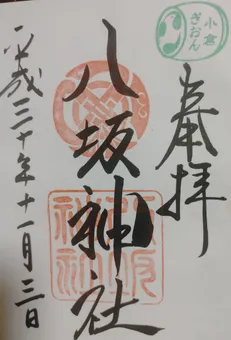 奉拝
小倉
ぎおん
八坂神社
八坂
神社
平成三十年十一月三日